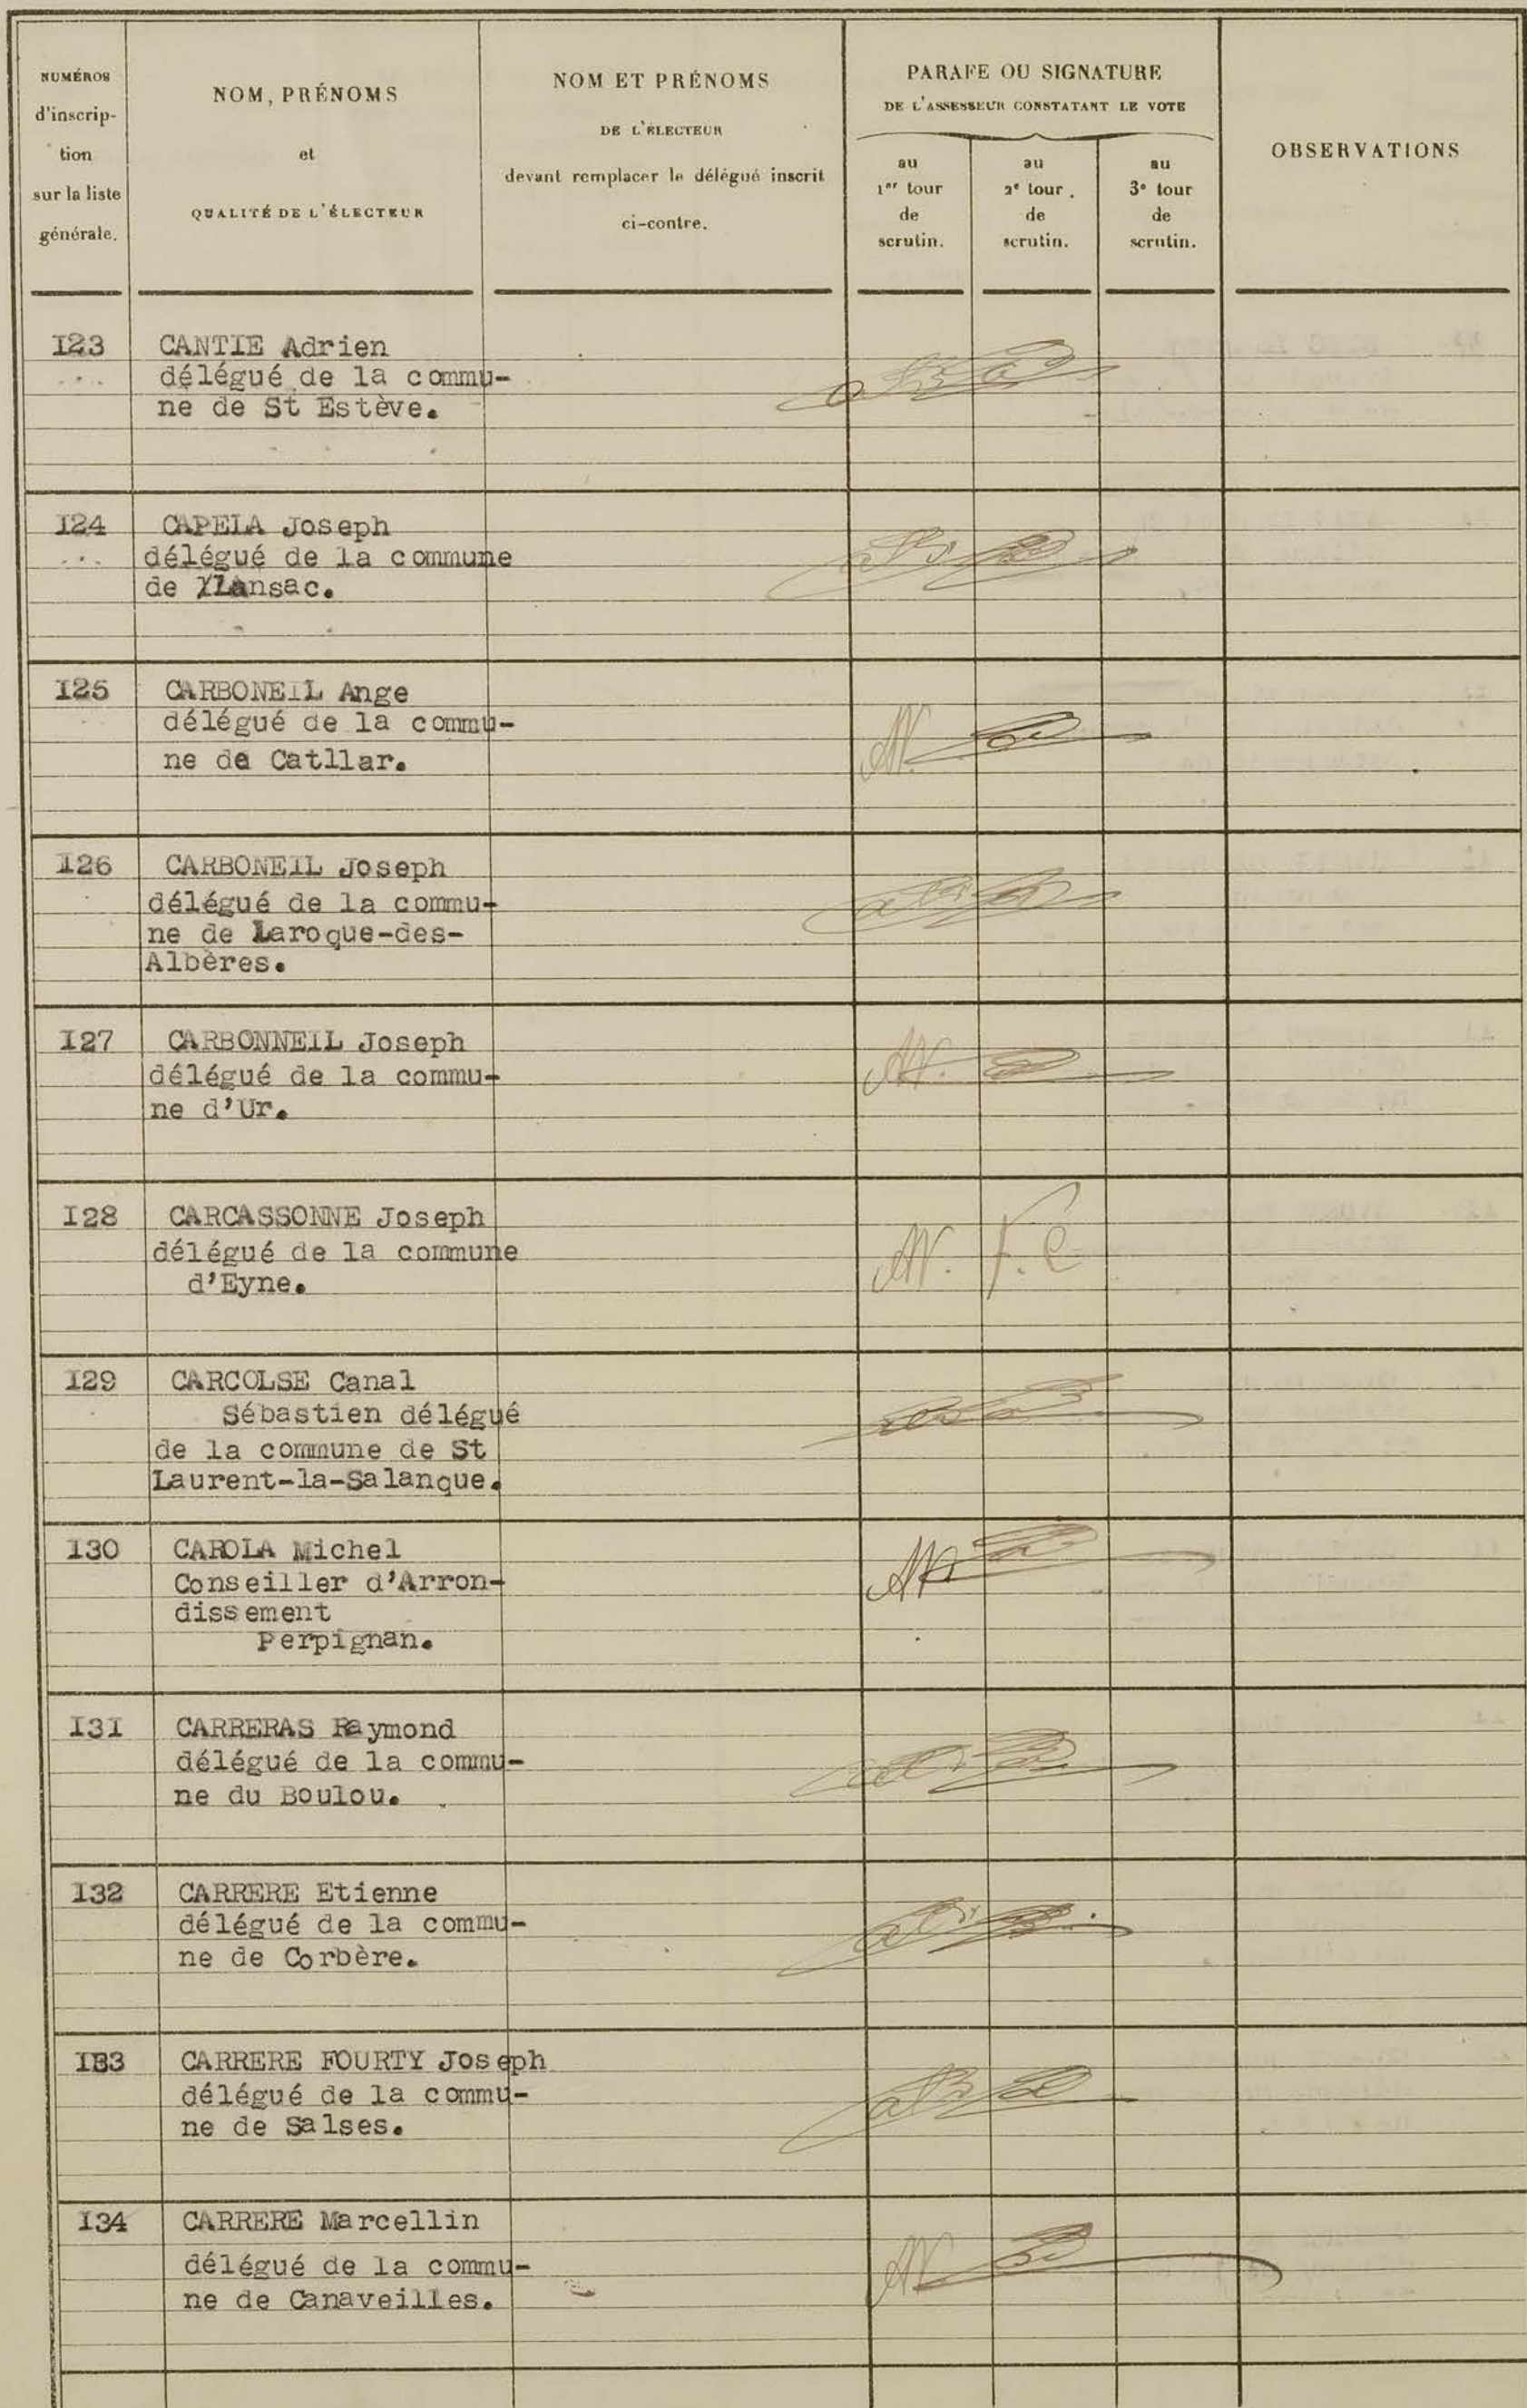 NUMÉROS
d'inscrip-
tion
sur la liste
générale.
NOM, PRÉNOMS
et
QUALITÉ DE L'ÉLECTEUR
NOM ET PRÉNOMS
DE L'ÉLECTEUR
devant remplacer le délégué inscrit
ci-contre.
PARAFE OU SIGNATURE
DE L'ASSESSEUR CONSTATANT LE VOTE
au
1er tour
de
scrutin.
au
2e tour.
de
scrutin.
au
3e tour
de
scrutin.
OBSERVATIONS
I23 CANTIE Adrien
délégué de la commu-
ne de St Estève.
I24 CAPELA Joseph
délégué de la commune
de Lansac.
I25 CARBONEIL Ange
délégué de la commu-
ne de Catllar.
I26 CARBONEIL Joseph
délégué de la commu-
ne de Laroque-des-
Albères.
I27 CARBONNEIL Joseph
délégué de la commu-
ne d'Ur.
I28 CARCASSONNE Joseph
délégué de la commune
d'Eyne.
I29 CARCOLSE Canal
Sébastien délégué
de la commune de St
Laurent-la-Salanque.
I30 CAROLA Michel
Conseiller d'Arron-
dissement
Perpignan.
I3I CARRERAS Raymond
délégué de la commu-
ne du Boulou.
I32 CARRERE Etienne
délégué de la commu-
ne de Corbère.
I33 CARRERE FOURTY Joseph
délégué de la commu-
ne de Salses.
I34 CARRERE Marcellin
délégué de la commu-
ne de Canaveilles.